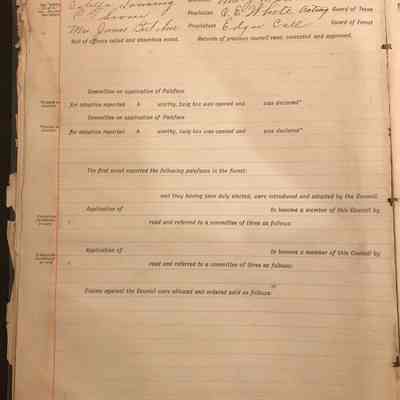 Prophetess O. E. White Acting Guard of Tepee
Mrs. James
Prophetess Edgar Call Guard of Forest
Roll of officers called and absentees noted. Records of previous council read, corrected and approved.
Committee on application of Paleface
for adoption reported h worthy, twig box was opened and was declared"
Committee on application of Paleface
for adoption reported h worthy, twig box was opened and was declared"
The first scout reported the following palefaces in the forest:
and they having been duly elected, were introduced and adopted by the Council.
Application of to become a member of this Council by
read and referred to a committee of three as follows:
Application of to become a member of this Council by
read and referred to a committee of three as follows:
Claims against the Council were allowed and ordered paid as follows: